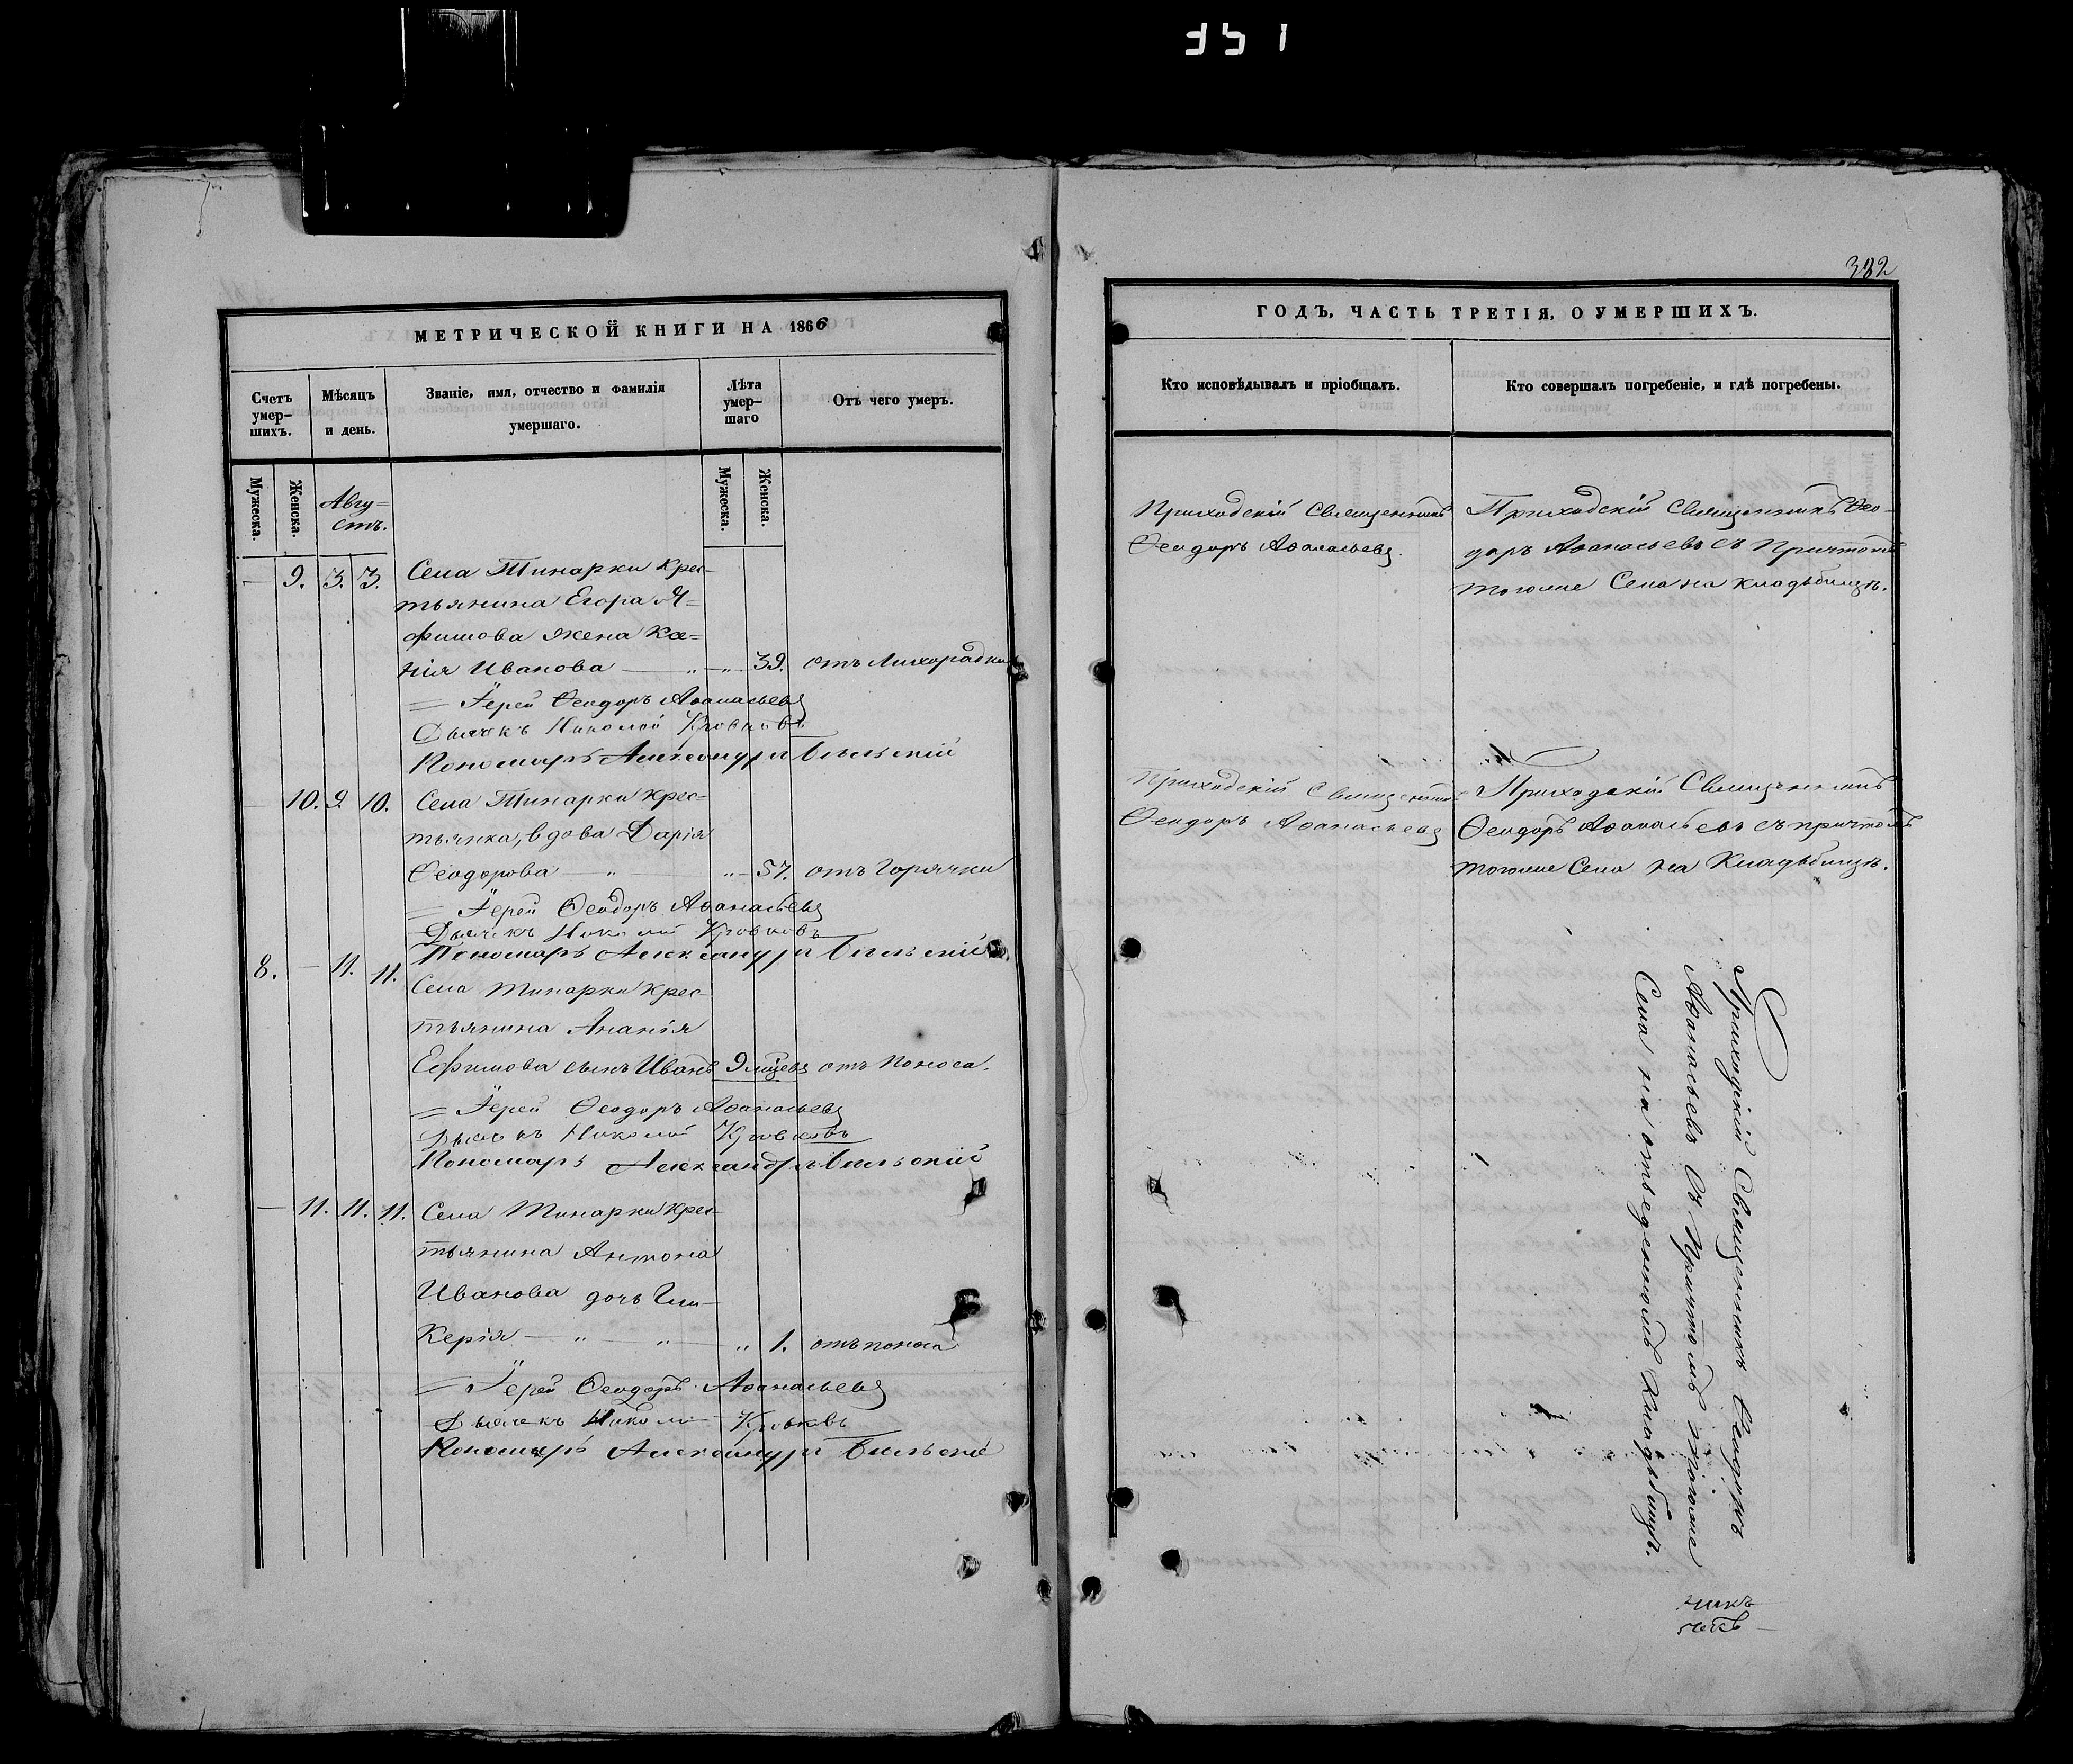 351
МЕТРИЧЕСКОЙ КНИГИ НА 1866
Счетъ умер-шихъ.
Мѣсяцъ и день.
Званіе, имя, отчество и фамилія умершаго.
Лѣта умер-шаго
Отъ чего умеръ.
Мужеска.
Женска.
Авгу=
стъ.
Мужеска.
Женска.
— 9. 3. 3. Села Тинарки Крес-
тьянина Егора Я=
фимова жена Ксе=
нія Иванова — „ — „ 39. отъ Лихорадки
= Іерей Ѳеодоръ Аѳанасьевъ
Дьячекъ Николай Кровковъ
Пономарь Александръ Бѣльскій
— 10. 9. 10. Села Тинарки Крес-
тьянка, вдова Дарія
Ѳеодорова — „ — „ — 57. отъ Горячки
= Іерей Ѳеодоръ Аѳанасьевъ
Дьячекъ Николай Кровковъ
Пономарь Александръ Бѣльскій
8. — 11. 11. Села Тинарки Крес-
тьянина Ананія
Ефимова сынъ Иванъ 9 мѣсцевъ отъ Поноса.
= Іерей Ѳеодоръ Аѳанасьевъ
Дьячекъ Николай Кровковъ
Пономарь Александръ Бѣльскій
— 11. 11. 11. Села Тинарки Крес-
тьянина Антона
Иванова дочь Гли-
керія — „ — „ — „ 1. отъ поноса
= Іерей Ѳеодоръ Аѳанасьевъ
Дьячекъ Николай Кровковъ
Пономарь Александръ Бѣльскій
382
ГОДЪ, ЧАСТЬ ТРЕТІЯ, О УМЕРШИХЪ.
Кто исповѣдывалъ и пріобщалъ.
Кто совершалъ погребеніе, и гдѣ погребены.
Приходскій Священникъ
Ѳеодоръ Аѳанасьевъ.
Приходскій Священникъ Ѳео-
доръ Аѳанасьевъ съ Причтомъ
тогоже Села на кладьбищѣ.
Приходскій Священникъ
Ѳеодоръ Аѳанасьевъ
Приходскій Священникъ
Ѳеодоръ Аѳанасьевъ съ причтомъ
тогоже Села на Кладьбищѣ.
Приходскій Священникъ Ѳеодоръ
Аѳанасьевъ Съ Причтомъ тогоже
Села на отведенномъ Кладьбищѣ.